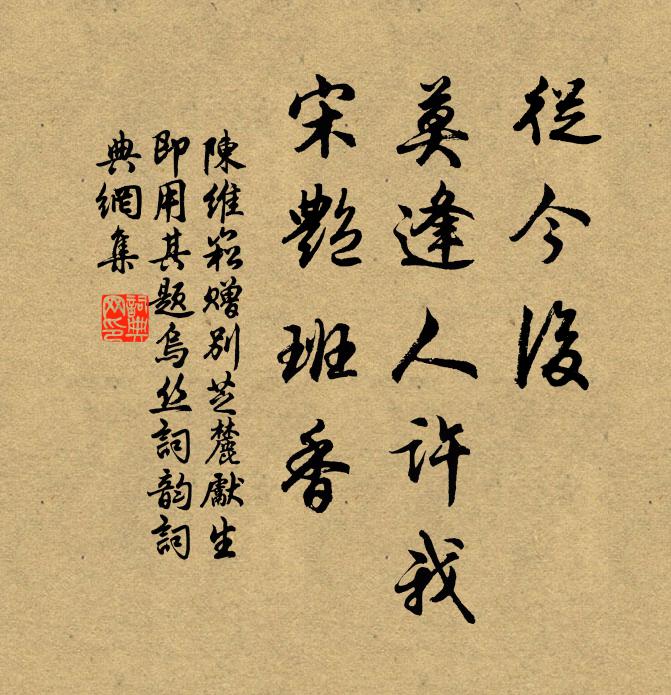 從今後
莫逢人許我
宋艷班香
陳維崧贈別芝麓獻生
即用其題烏丝詞韵詞
典網集
詞典
网印